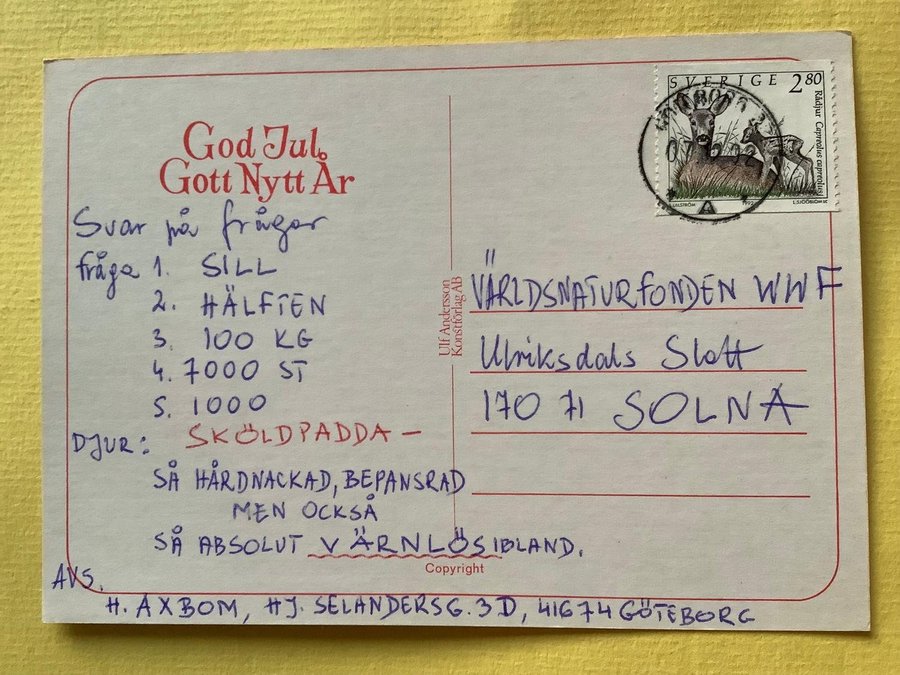 God Jul
Gott Nytt År
Svar på frågor
fråga 1. SILL
2. HÄLFTEN
3. 100 KG
4. 7000 ST
5. 1000
DJUR: SKÖLDPADDA —
SÅ HÅRDNACKAD, BEPANSRAD
MEN OCKSÅ
SÅ ABSOLUT VÄRNLÖS IBLAND.
AVS.
H. AXBOM, HJ. SELANDERSG. 3D, 41674 GÖTEBORG
Copyright
Ulf Andersson
Konstförlag AB
SVERIGE 2.80
Rådjur Capreolus capreolus
L.SJÖÖBLOM SC
VÄRLDSNATURFONDEN WWF
Ulriksdals Slott
170 71 SOLNA